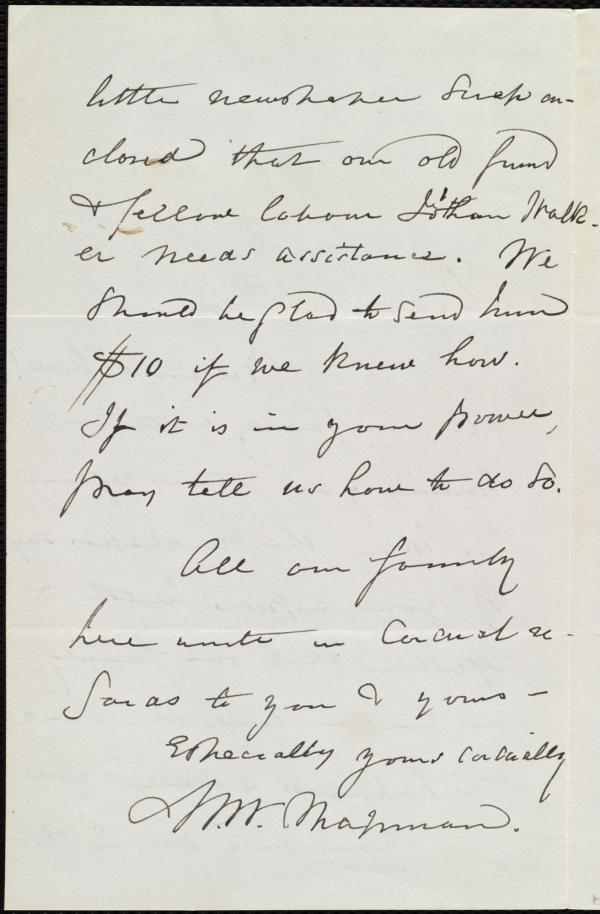 little newspaper scrap en-
closed that our old friend
& fellow labour Jo'than Walk-
er needs assistance. We
should be glad to send him
$10 if we knew how.
If it is in your power,
pray tell us how to do so.
All our family
here unite in cordial re-
gards to you & yours -
Especially yours cordially
M. W. Chapman.